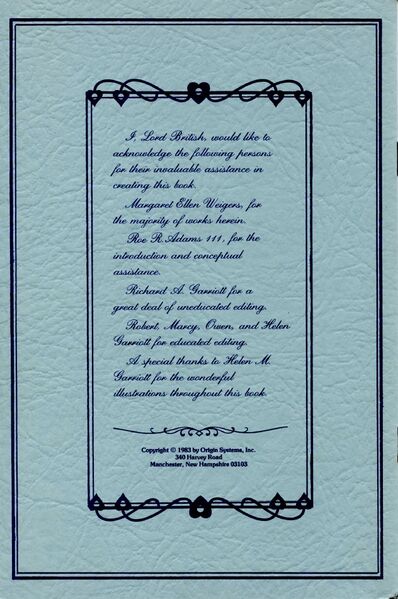 I, Lord British, would like to
acknowledge the following persons
for their invaluable assistance in
creating this book.
Margaret Ellen Weigers, for
the majority of works herein.
Roe R. Adams 111, for the
introduction and conceptual
assistance.
Richard A. Garriott for a
great deal of uneducated editing.
Robert, Marcy, Owen, and Helen
Garriott for educated editing.
A special thanks to Helen M.
Garriott for the wonderful
illustrations throughout this book.
Copyright © 1983 by Origin Systems, Inc.
340 Harvey Road
Manchester, New Hampshire 03103